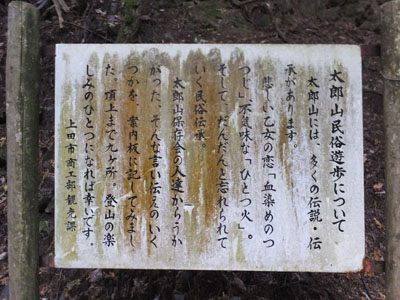 太郎山民俗遊歩について
太郎山には、多くの伝説・伝
承があります。
悲しい乙女の恋「血染めのつ
つじ」不気味な「ひとつ火」。
そして、だんだんと忘れられて
いく民俗伝承。
太郎山保存会の人達からうか
がった、そんな言い伝えのいく
つかを、案内板に記してみまし
た。頂上まで九ヶ所。登山の楽
しみのひとつになれば幸いです。
上田市商工部観光課